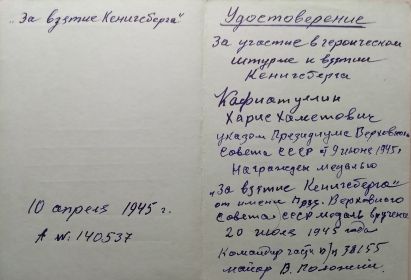 „За взятие Кенигсберга"
10 апреля 1945 г.
А № 140537
Удостоверение
За участие в героическом
штурме и взятии
Кенигсберга
Кафиатуллин
Харис Хаметович
указом Президиума Верховного
Совета СССР от 9 июня 1945г.
Награжден медалью
„За взятие Кенигсберга"
от имени През. Верховного
Совета СССР медаль вручена
20 июля 1945 года
Командир части п/п 38155
майор В.